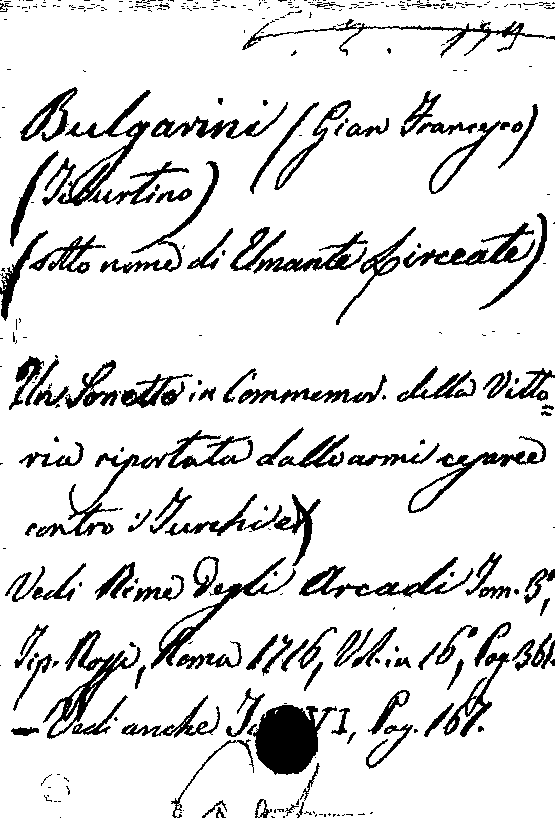 Bulgarini (Gian Francesco)
(Tiburtino)
(sotto nome di Elmante Lirceate)
Un Sonetto in Commemor. della Vitto=
ria riportata dalle armi cesaree
contro i Turchi ec)
Vedi Rime degli Arcadi Tom. 3°,
Tip. Rossi, Roma 1716, Vol. in 16°, Pag 361.
— Vedi anche VI, Pag. 167.